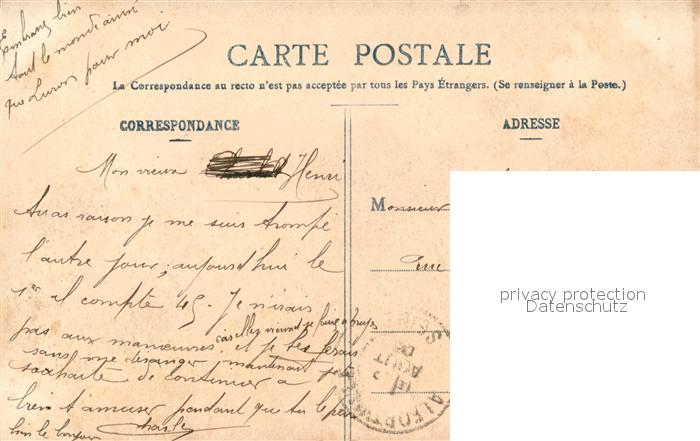 Embrasse bien
tout le monde ainsi
que Lucien pour moi
CARTE POSTALE
La Correspondance au recto n'est pas acceptée par tous les Pays Étrangers. (Se renseigner à la Poste.)
CORRESPONDANCE
ADRESSE
Mon vieux Henri
Tu as raison je me suis trompé
l'autre jour; aujourd'hui le
1er il compte 45. Je n'irais
pas aux manœuvres car elles viennent se faire
et je les ferais
sans me déranger, maintenant je te
souhaite de continuer a
bien t'amuser pendant que tu le peux
Charles
bien le bonjour
Monsieur
privacy protection
Datenschutz
AOUT